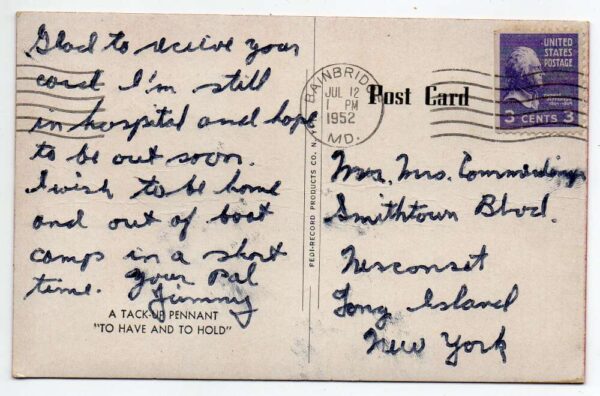 Glad to receive your
card I'm still
in hospital and hope
to be out soon.
I wish to be home
and out of boat
camps in a short
time. Your Pal
Jimmy
A TACK-UP PENNANT
"TO HAVE AND TO HOLD"
PEDI-RECORD PRODUCTS CO. N.Y.
BAINBRIDGE
JUL 12
1 PM
1952
MD.
Post Card
UNITED
STATES
POSTAGE
3 CENTS 3
Mr. Mrs.
Smithtown Blvd.
Nesconset
Long Island
New York